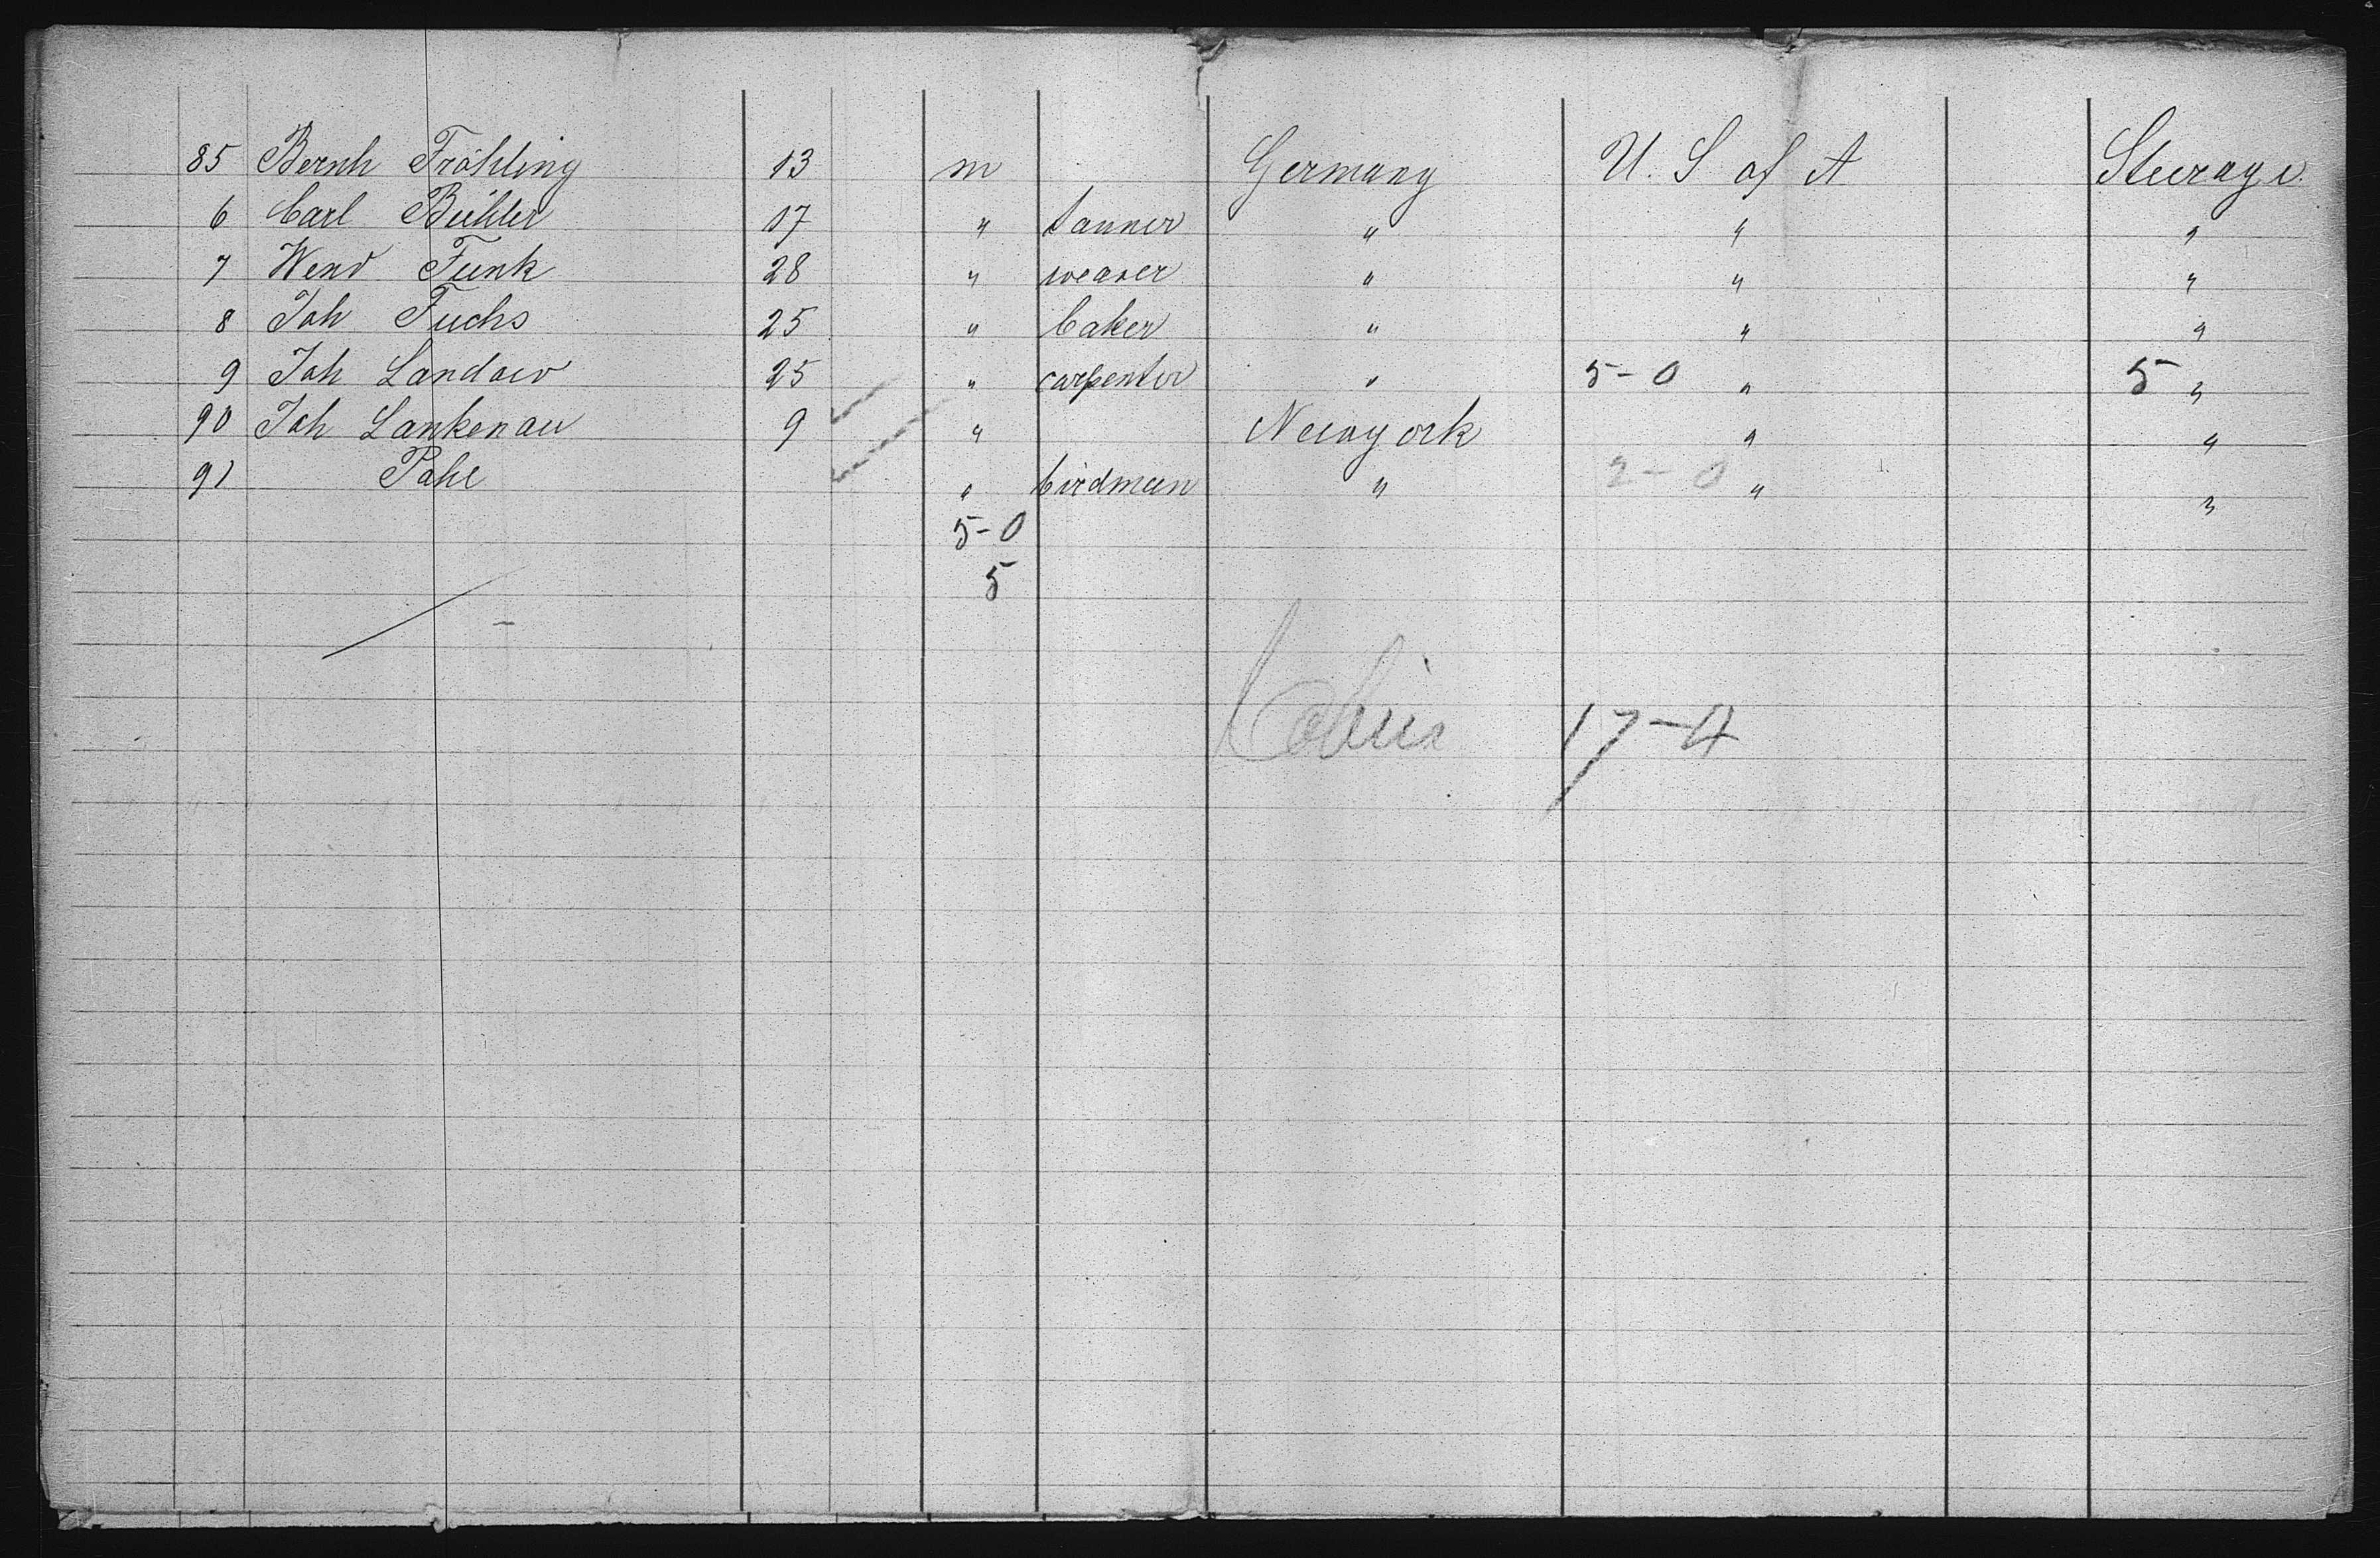 85 Bernh Fröhling 13 m Germany U. S of A Steerage
6 Carl Bühler 17 " tanner " " "
7 Wend Funk 28 " weaver " " "
8 Joh Fuchs 25 " baker " " "
9 Joh Landow 25 " carpenter " 5-0 " 5 "
90 Joh Lankenau 9 " Newyork " "
91 Pahl " birdman " 2-0 " "
5-0
5
Cabin 17-4